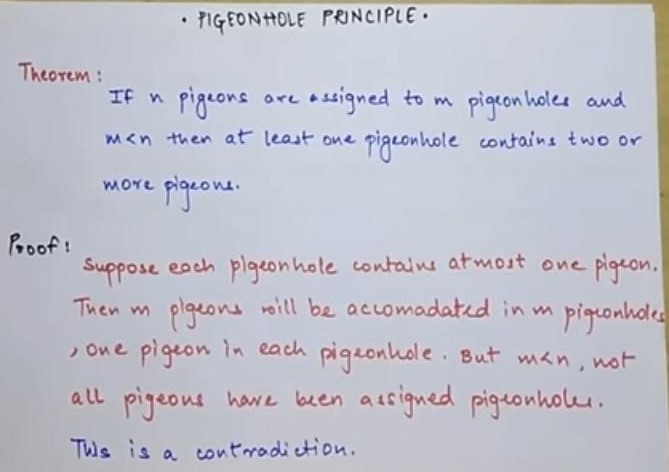 · PIGEONHOLE PRINCIPLE ·
Theorem :
If n pigeons are assigned to m pigeonholes and
m<n then at least one pigeonhole contains two or
more pigeons.
Proof :
Suppose each pigeonhole contains atmost one pigeon.
Then m pigeons will be accomadated in m pigeonholes
, one pigeon in each pigeonhole. But m<n, not
all pigeons have been assigned pigeonholes.
This is a contradiction.